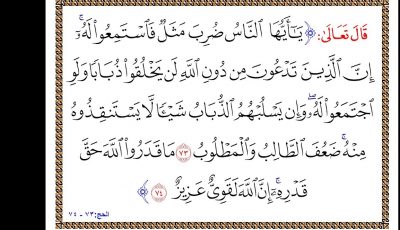 قَالَ تَعَالَىٰ: ﴿يَـٰٓأَيُّهَا ٱلنَّاسُ ضُرِبَ مَثَلٌ فَٱسْتَمِعُوا۟ لَهُۥٓ ۚ
إِنَّ ٱلَّذِينَ تَدْعُونَ مِن دُونِ ٱللَّهِ لَن يَخْلُقُوا۟ ذُبَابًا وَلَوِ
ٱجْتَمَعُوا۟ لَهُۥ ۖ وَإِن يَسْلُبْهُمُ ٱلذُّبَابُ شَيْـًٔا لَّا يَسْتَنقِذُوهُ
مِنْهُ ۚ ضَعُفَ ٱلطَّالِبُ وَٱلْمَطْلُوبُ ٧٣ مَا قَدَرُوا۟ ٱللَّهَ حَقَّ
قَدْرِهِۦٓ ۗ إِنَّ ٱللَّهَ لَقَوِىٌّ عَزِيزٌ ٧٤﴾
الحج: ٧٣ - ٧٤